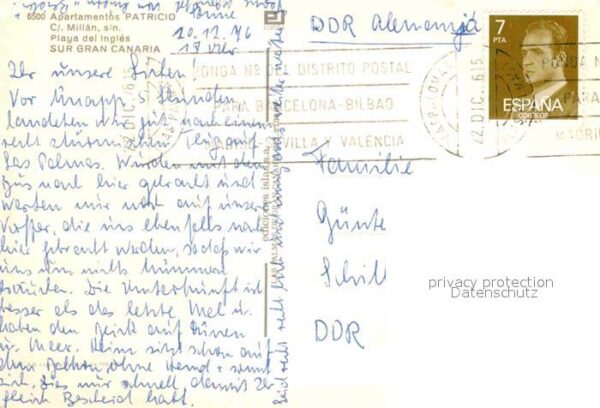 6500 Apartamentos PATRICIO
C/. Millán, s/n.
Playa del Inglés
SUR GRAN CANARIA
20.12.76
17 Uhr
DDR Alemania
7
PTA
ESPAÑA
CORREOS
PONGA Nº DEL DISTRITO POSTAL
PARA BARCELONA-BILBAO
MADRID-SEVILLA Y VALENCIA
22 DIC. 76
LAS PALMAS
PONGA N
PARA
MADRI
Ihr unsere Lieben!
Vor knapp 5 Stunden
landeten wir gut nach einem
recht stürmischen Flug auf
Las Palmas. Wurden mit dem
Bus nach hier gebracht und
warten nur noch auf unsere
Koffer, die uns ebenfalls nach
hier gebracht werden, so daß wir
uns um nichts kümmern
brauchen. Die Unterkunft ist
besser als das letzte Mal u.
haben den Blick auf Dünen
u. Meer. Heinz sitzt schon auf
dem Balkon, ohne Hemd + sonnt
sich. Dies nur schnell, damit Ihr
gleich Bescheid habt.
Seid recht
Familie
Günte
Schill
DDR
privacy protection
Datenschutz